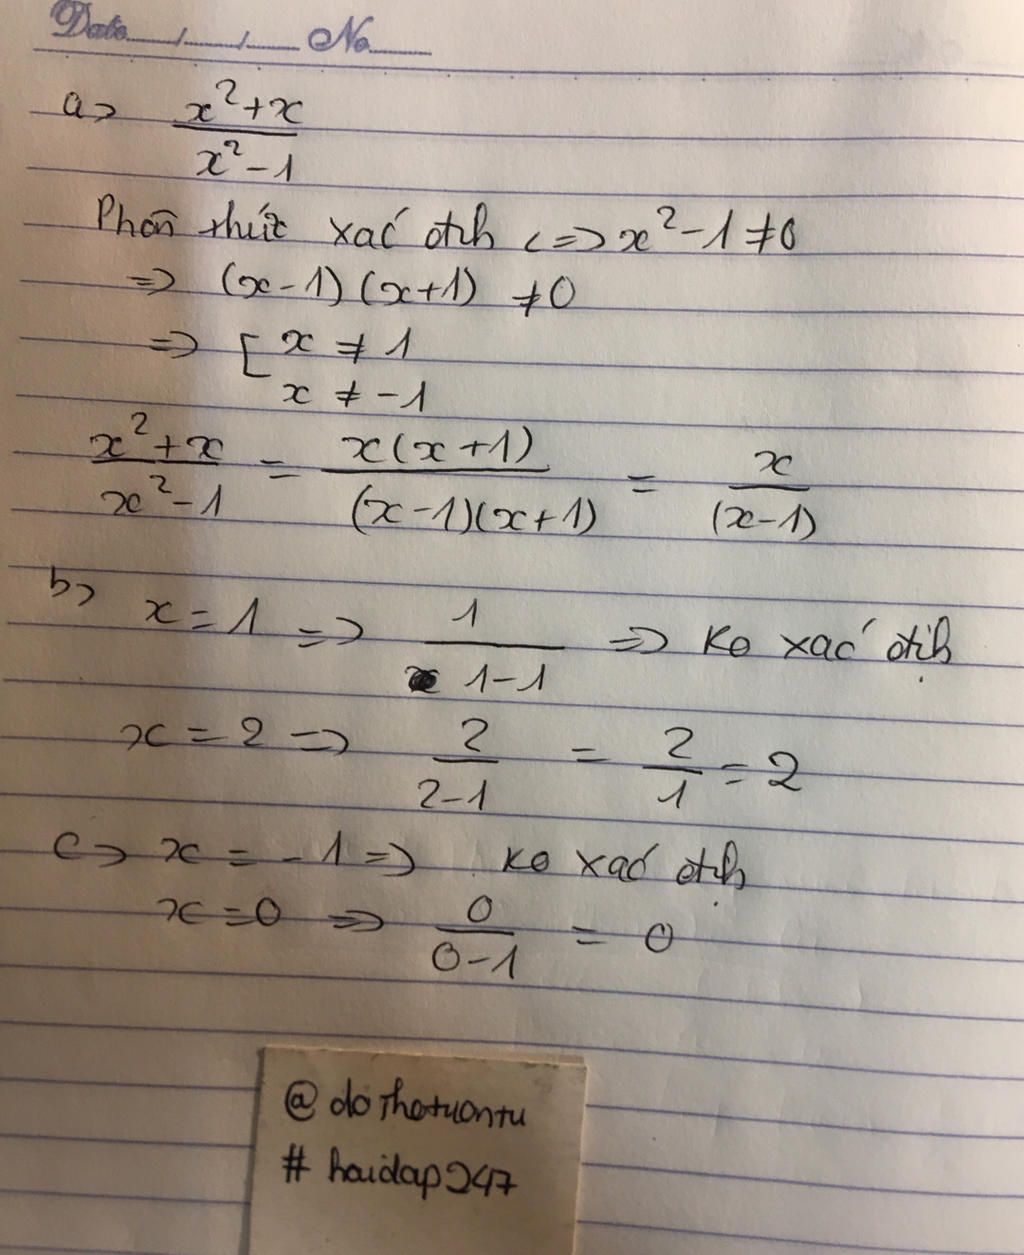 Date __/__/__ No.__
a> (x²+x)/(x²-1)
Phân thức xác định <=> x²-1≠0
=> (x-1)(x+1) ≠0
=> [ x ≠ 1
x ≠ -1
(x²+x)/(x²-1) = x(x+1)/((x-1)(x+1)) = x/(x-1)
b> x=1 => 1/(1-1) => Ko xác định
x=2 => 2/(2-1) = 2/1 = 2
c> x = -1 => Ko xác định
x=0 => 0/(0-1) = 0
@dothotuantu
#hoidap247